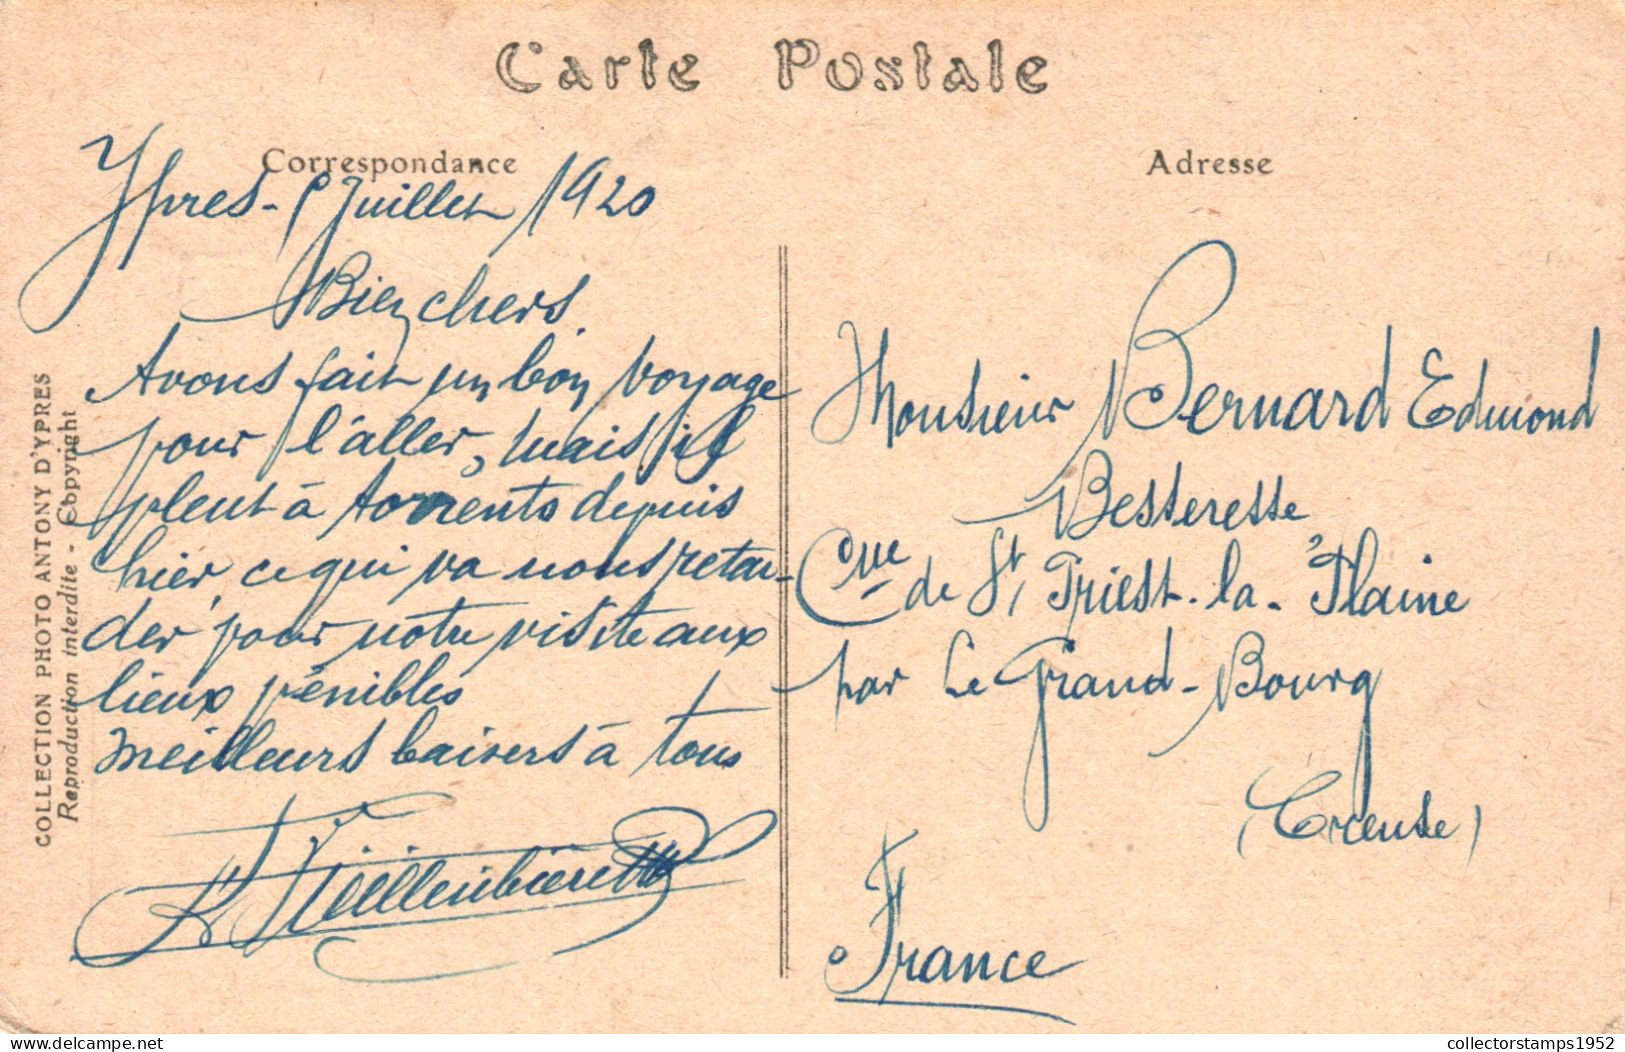 Carte Postale
Correspondance
Ypres - Juillet 1920
Bien chers
Avons fait un bon voyage
pour l'aller, mais il
pleut à torrents depuis
hier, ce qui va nous retar-
der pour notre visite aux
lieux pénibles
meilleurs baisers à tous
COLLECTION PHOTO ANTONY D'YPRES
Reproduction interdite - Copyright
Adresse
Monsieur Bernard Edmond
Besseresse
Cne de St Priest-la-Plaine
par Le Grand-Bourg
(Creuse)
France
delcampe.net
collectorstamps1952